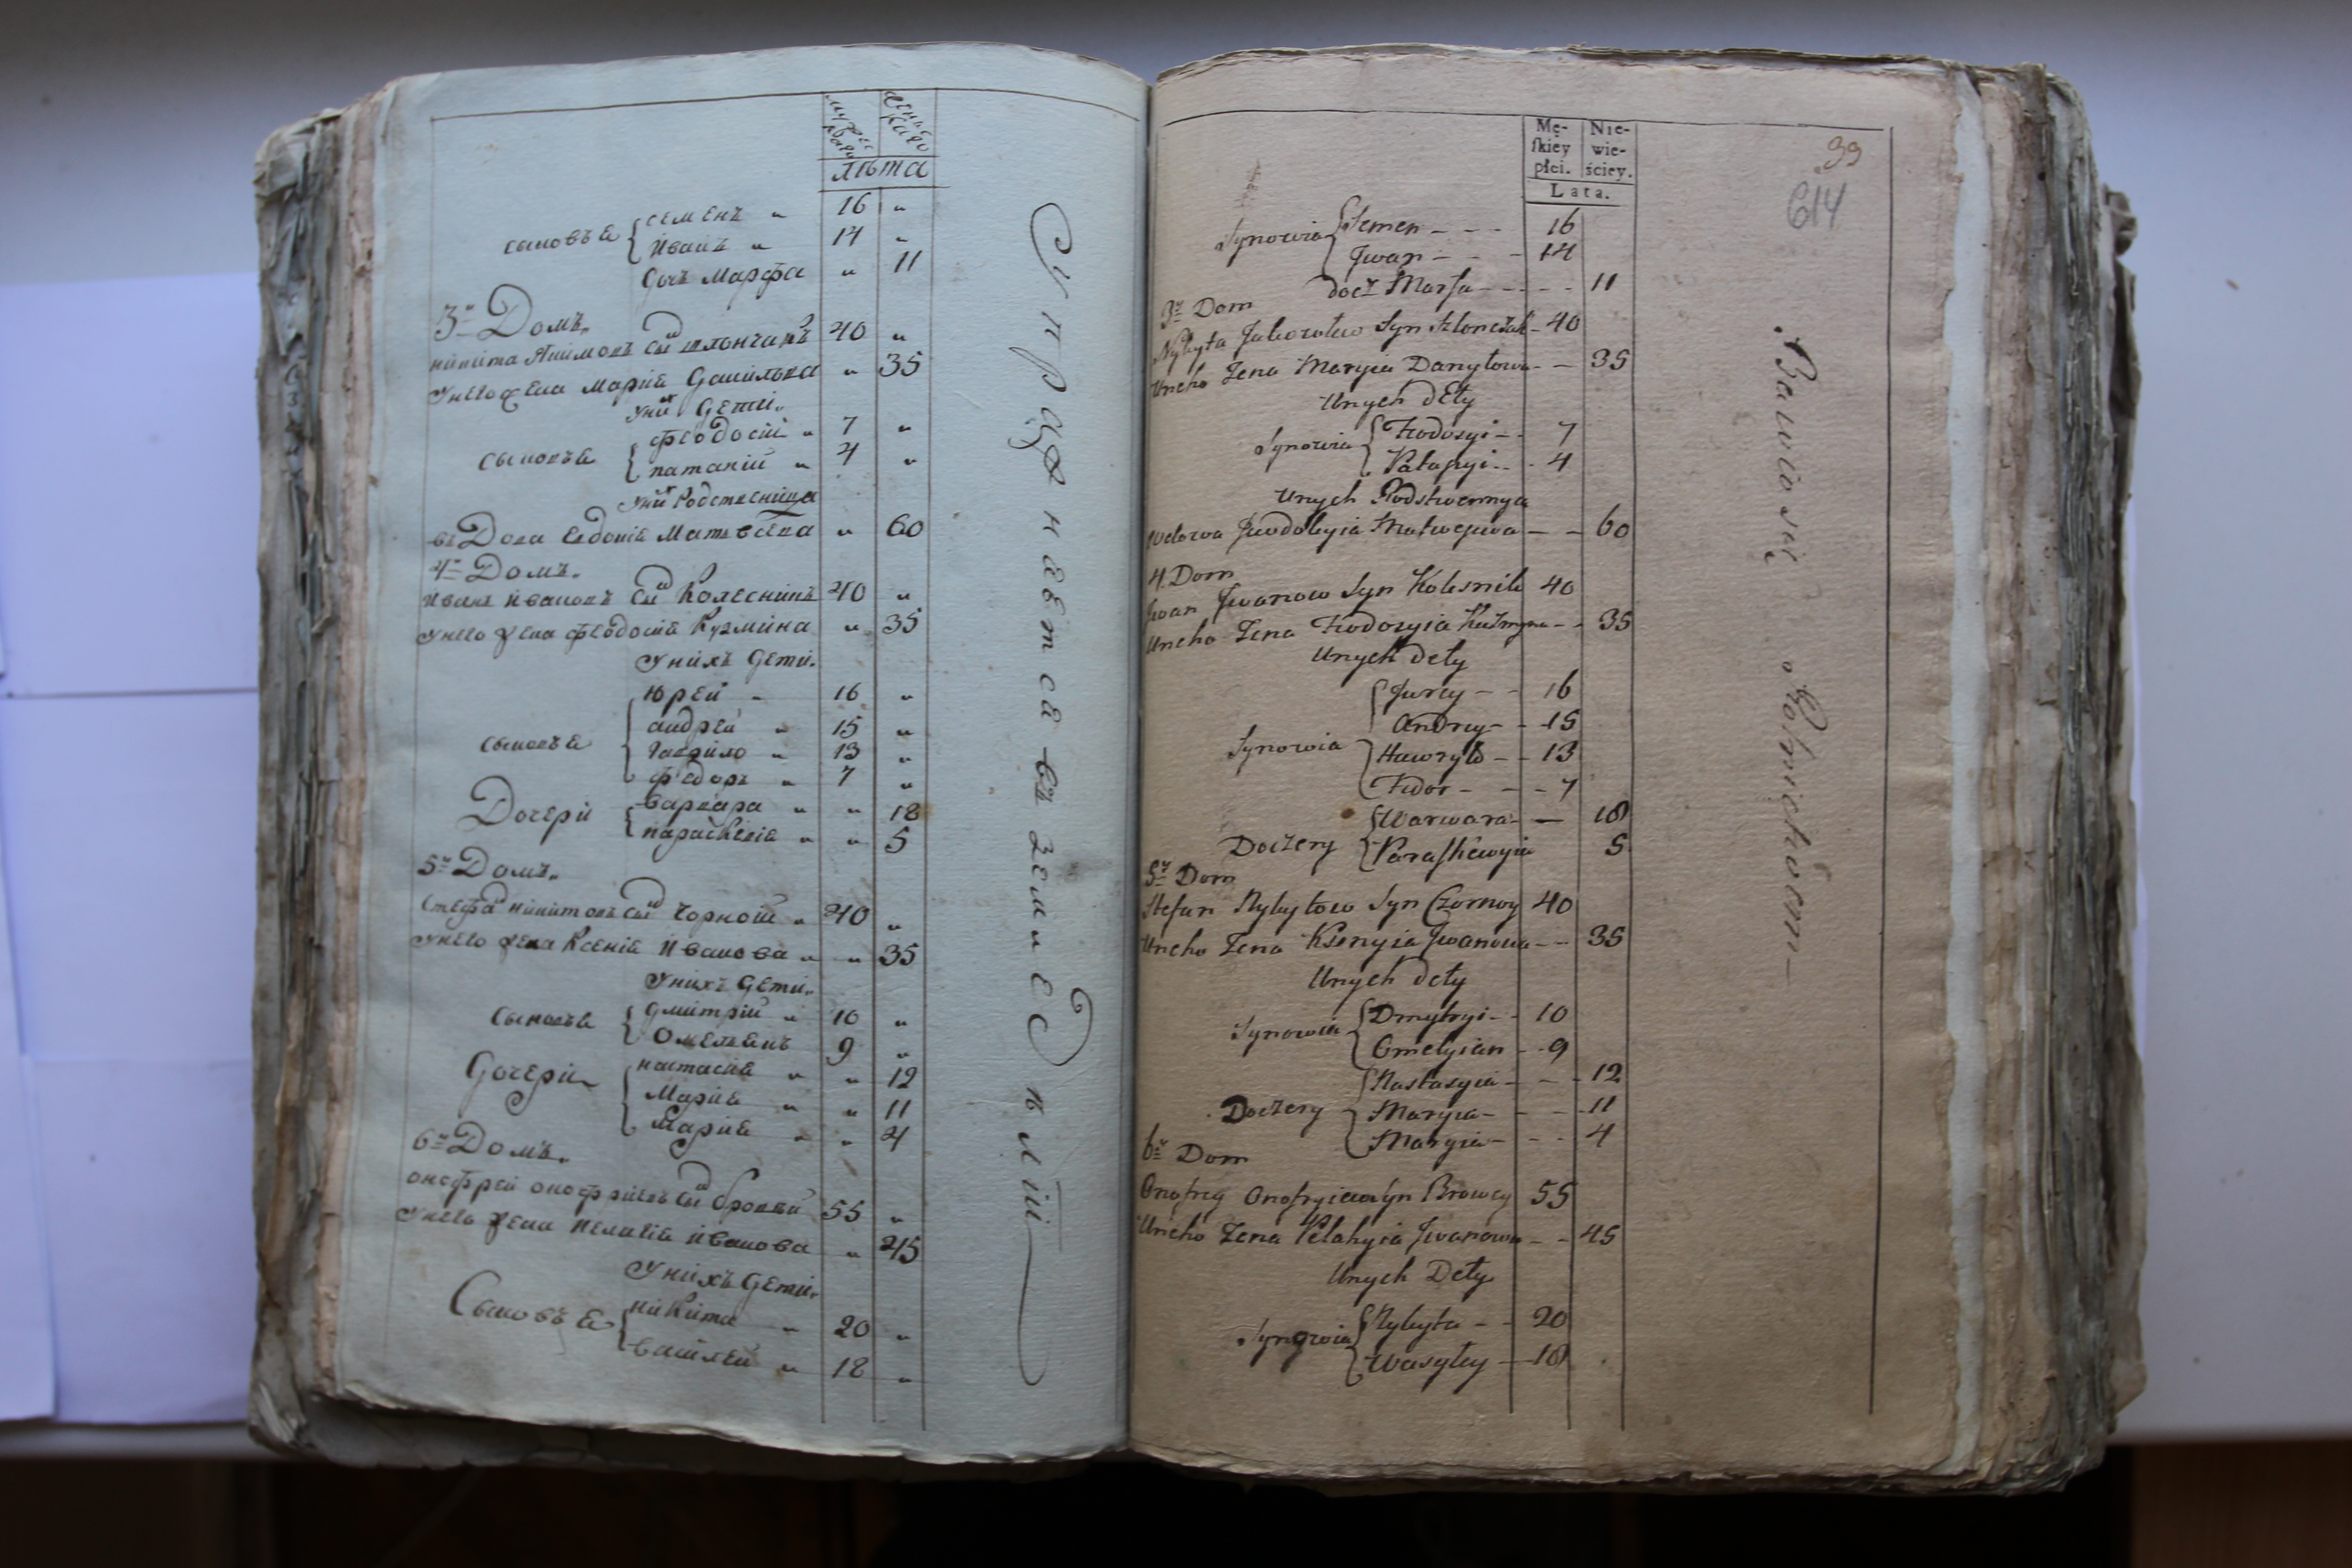 лѣта
сыновья { семенъ „ 16 „
Иванъ „ 14 „
дочъ Марфа „ 11
3й Домъ.
никита Якимовъ сы шлончакъ 40 „
Унего жена Марія данилова „ 35
Уних дети.
сыновья { феодосій „ 7 „
патапій „ 4 „
Уних Родственница
вдова Евдокія Матвеева „ 60
4й Домъ.
Иванъ Ивановъ сы Колесникъ 40 „
Унего жена феодосия Кузмина „ 35
Унихъ дети.
Юрей „ 16 „
андрей „ 15 „
сыновья { гаврило „ 13 „
федоръ „ 7 „
Дочери { варвара „ „ 18
параскевія „ „ 5
5й Домъ.
Стефа никитовъ сы Чорной „ 40 „
Унего жена Ксенія Иванова „ „ 35
Унихъ дети.
сыновья { дмитрій „ 10 „
Омелянъ 9 „
дочери { настасія „ „ 12
Марія „ „ 11
Марія „ „ 4
6й Домъ.
онофрей онофріевъ сы бровей 55 „
Унего жена Пелагія Иванова „ 45
Унихъ дети.
Сыновья { никита „ 20 „
василей „ 18 „
Упражняется въ земледѣліи
Mę- Nie-
skiey wie-
płci. ściey.
Lata.
39
614
Synowia { Semen - - - 16
Jwan - - - 14
docz Marfa - - - - 11
3й Dom
Nykyta Jakowlew Syn Szlonczak - 40
Uneho Żena Maryia Danyłowa - - 35
Unych dEty
Synowia { Feodosyi - - 7
Patapyi - - 4
Unych Rodstwennyca
wdowa Jewdokyia Matwejewa - - 60
4. Dom
Jwan Jwanow Syn Kolesnik 40
Uneho Żena Feodosyia Kuzmyna - - 35
Unych dety
{ Jurey - - 16
Andrey - - 15
Synowia } Hawryło - - 13
Fedor - - - 7
{ Warwara - — 18
Doczery { Paraskewyia 5
5й Dom
Stefan Nykytow Syn Czornoy 40
Uneho Żena Ksenyia Jwanowa - - 35
Unych dety
Synowia { Dmytryi - - 10
Omelyian - - 9
{ Nastasyia - - - 12
Doczery { Maryia - - - 11
Maryia - - - 4
6й Dom
Onofrey Onofryiew Syn Browey 55
Uneho Żena Pelahyia Jwanowa - - 45
Unych Dety
Synowia { Nykyta - - 20
Wasyley - 18
Bawio się Rolnictwem —